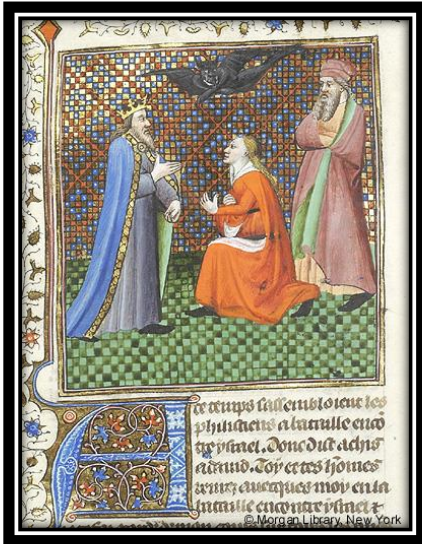 ce temps sassembloient les
philistiens a bataille encō
tre ysrael. Donc dist achis
a dauid. Toy et tes hōmes
venez auecques moy en la
bataille encontre ysrael et
© Morgan Library, New York